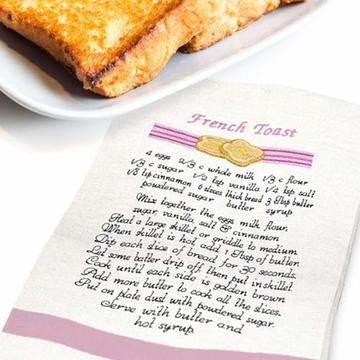 French Toast
4 eggs 2/3 c whole milk 1/3 c flour
1/3 c sugar 1/2 tsp vanilla 1/4 tsp salt
1/8 tsp cinnamon 6 slices thick bread 3 Tbsp butter
powdered sugar butter syrup
Mix together the eggs, milk, flour,
sugar, vanilla, salt & cinnamon.
Heat a large skillet or griddle to medium.
When skillet is hot, add 1 Tbsp of butter.
Dip each slice of bread for 30 seconds.
Let some batter drip off, then put in skillet.
Cook until each side is golden brown.
Add more butter to cook all the slices.
Put on plate dust with powdered sugar.
Serve with butter and
hot syrup.